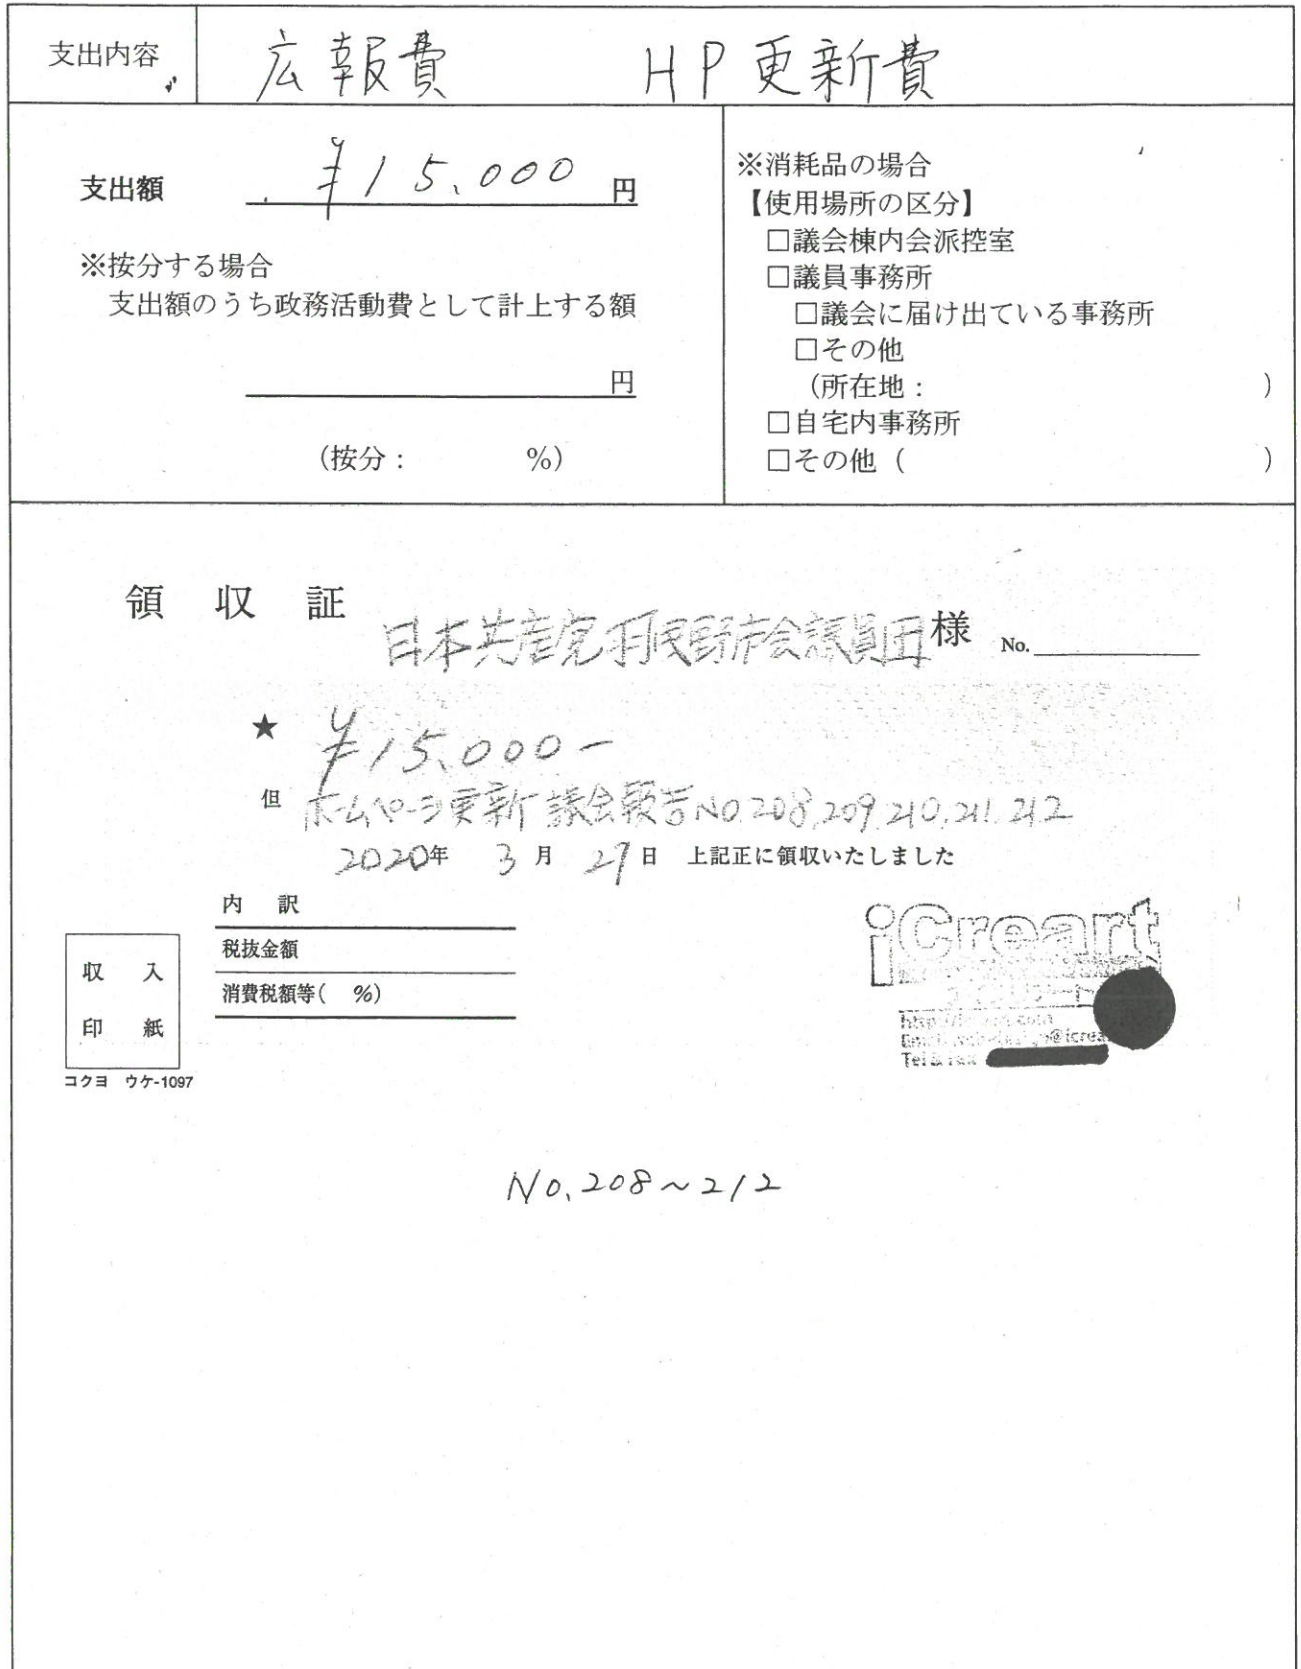 支出内容 広報費 HP更新費
支出額 ¥15,000 円
※按分する場合
支出額のうち政務活動費として計上する額
円
(按分: %)
※消耗品の場合
【使用場所の区分】
□議会棟内会派控室
□議員事務所
□議会に届け出ている事務所
□その他
(所在地: )
□自宅内事務所
□その他( )
領収証
日本共産党羽曳野市会議員団 様 No.
★ ¥15,000-
但 ホームページ更新 議会報告NO.208,209,210,211,212
2020年 3月 27日 上記正に領収いたしました
内訳
税抜金額
消費税額等( %)
収入
印紙
コクヨ ウケ-1097
iCreart
Tel & Fax
No.208~212